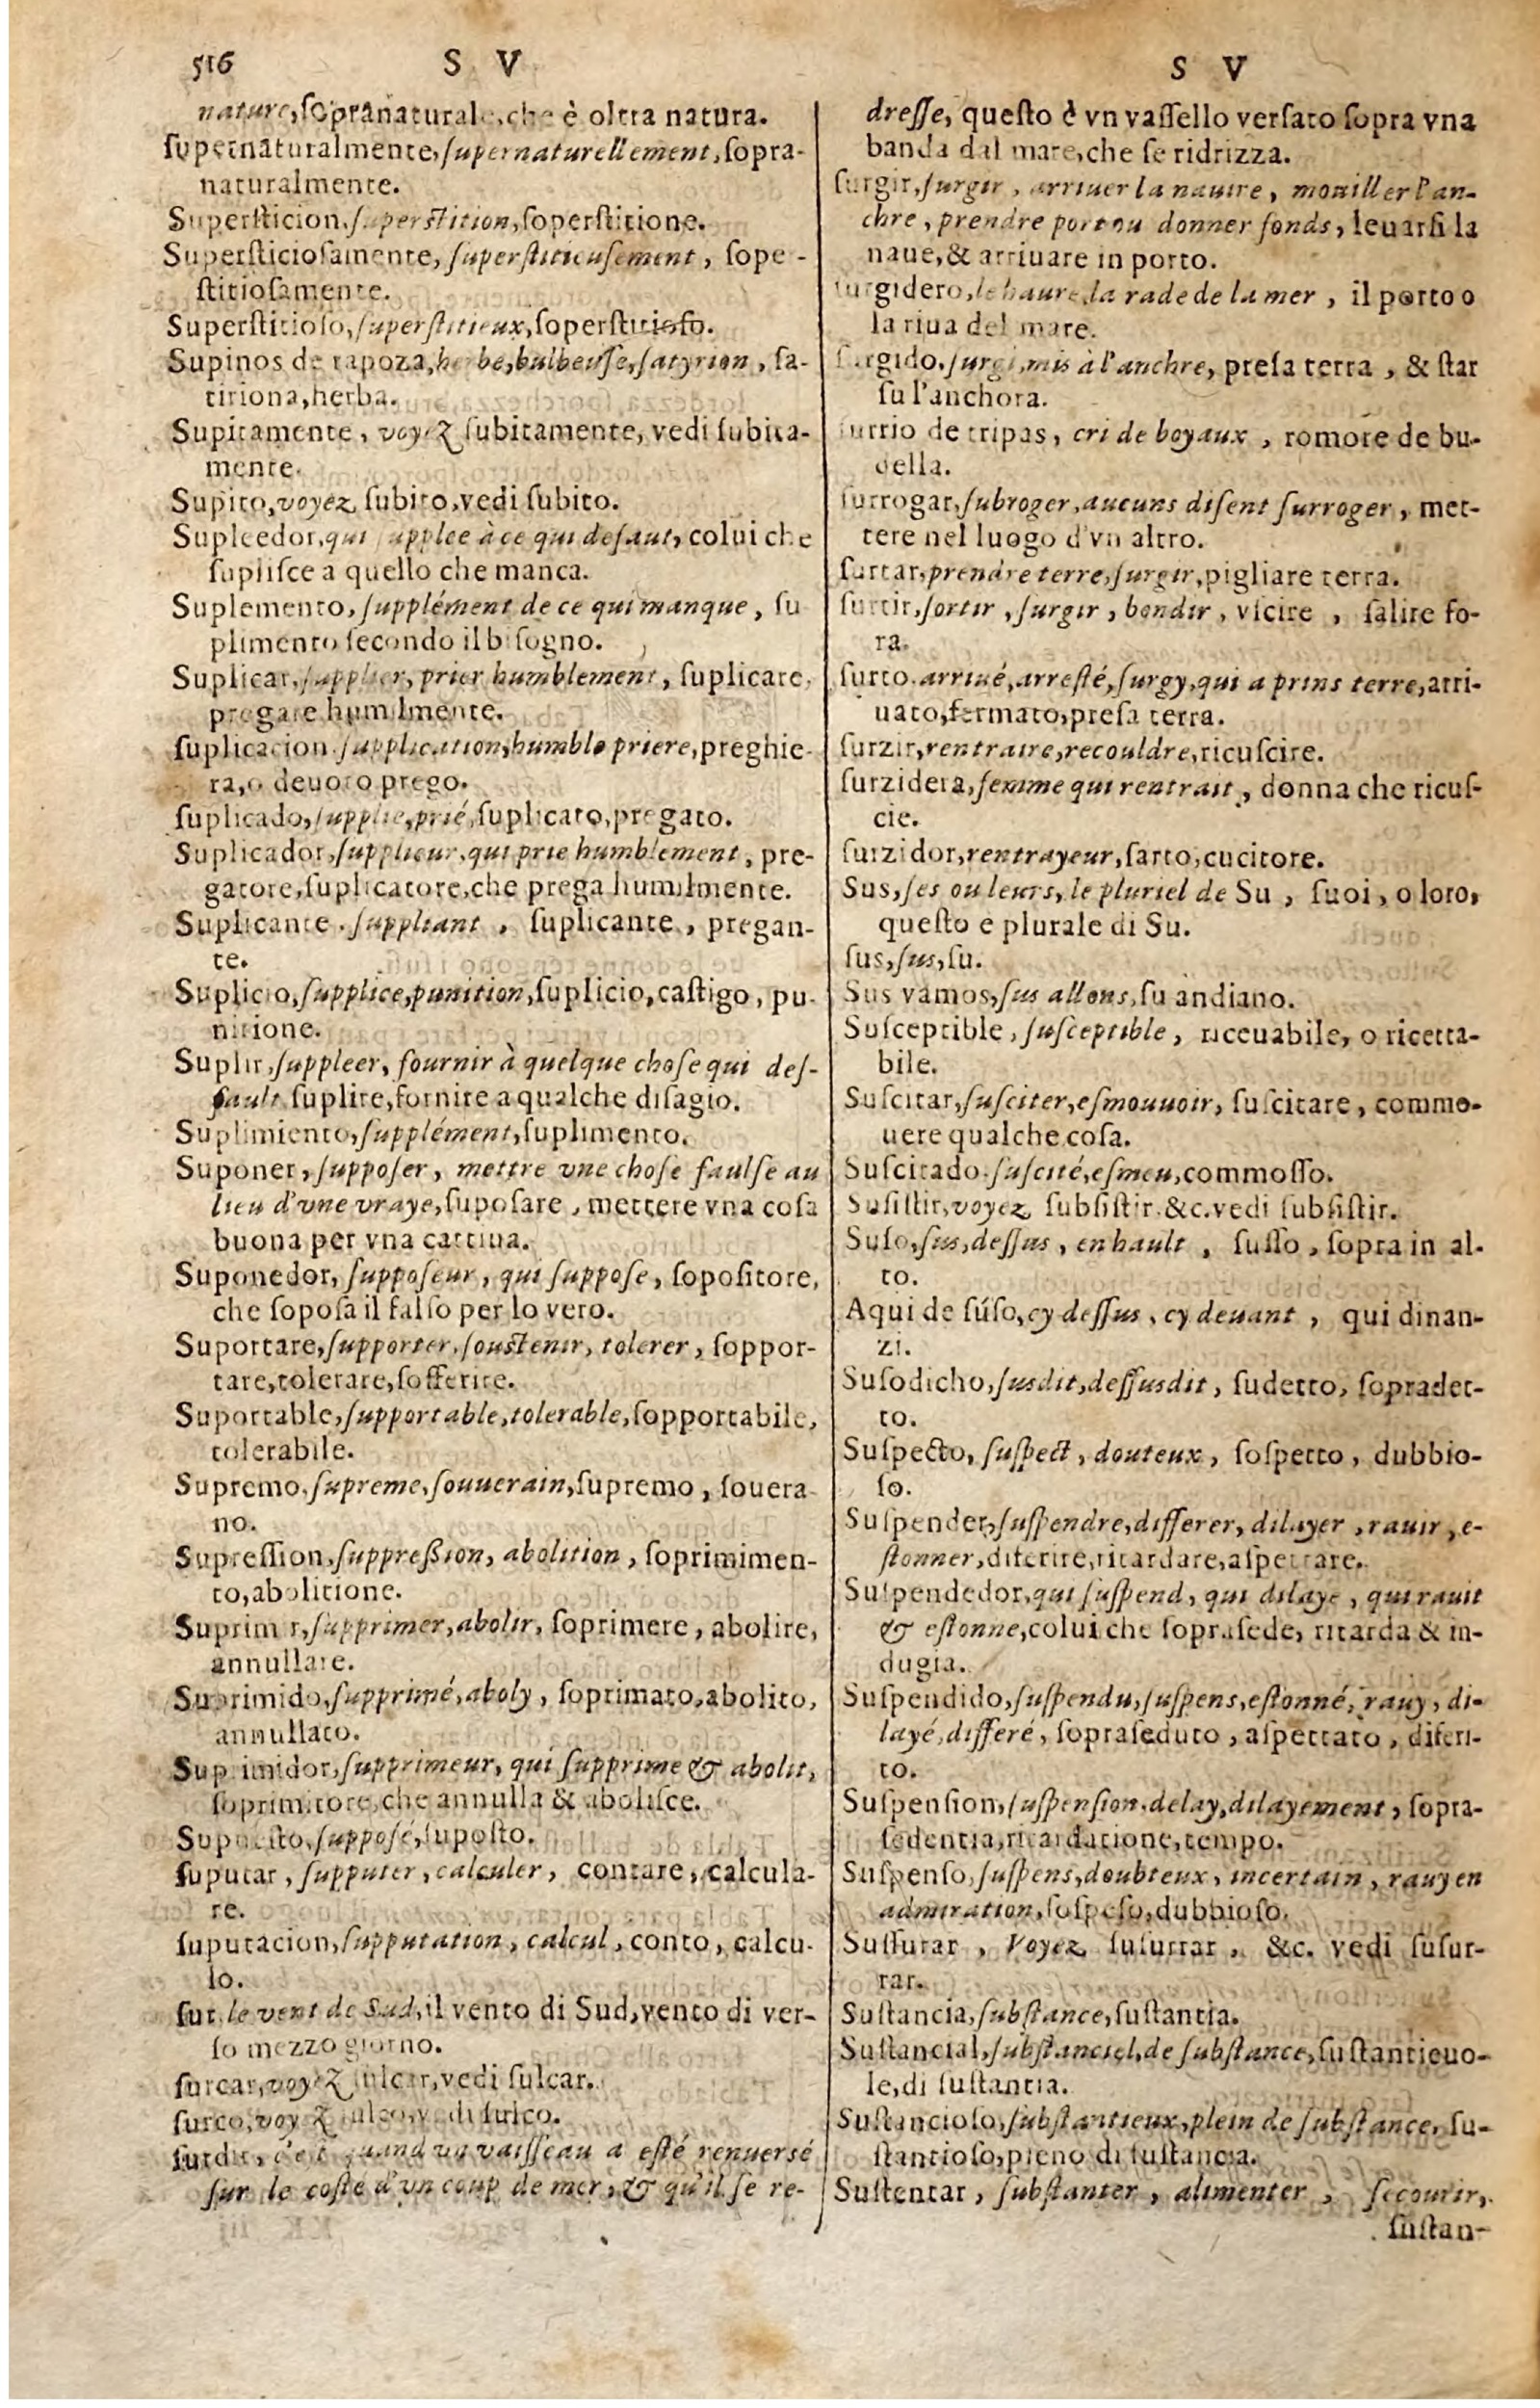 516 S V
nature, ſopranaturale, che è oltra natura.
ſupernaturalmente, ſupernaturellement, ſopra-
naturalmente.
Superſticion, ſuperſtition, ſoperſtitione.
Superſticioſamente, ſuperſtitieuſement, ſope-
ſtitioſamente.
Superſtitioſo, ſuperſtitieux, ſoperſtitioſo.
Supinos de rapoza, herbe, bulbeuſe, ſatyrion, ſa-
tiriona, herba.
Supitamente, voyez ſubitamente, vedi ſubita-
mente.
Supito, voyez ſubito, vedi ſubito.
Supleedor, qui ſupplee à ce qui defaut, colui che
ſupliſce a quello che manca.
Suplemento, ſupplément de ce qui manque, ſu
plimento ſecondo il biſogno.
Suplicar, ſupplier, prier humblement, ſuplicare,
pregare humilmente.
ſuplicacion, ſupplication, humble priere, preghie-
ra, o deuoto prego.
ſuplicado, ſupplié, prié, ſuplicato, pregato.
Suplicador, ſupplieur, qui prie humblement, pre-
gatore, ſuplicatore, che prega humilmente.
Suplicante, ſuppliant, ſuplicante, pregan-
te.
Suplicio, ſupplice, punition, ſuplicio, caſtigo, pu-
nitione.
Suplir, ſuppleer, fournir à quelque choſe qui deſ-
fault, ſuplire, fornire a qualche diſagio.
Suplimiento, ſupplément, ſuplimento.
Suponer, ſuppoſer, mettre vne choſe faulſe au
lieu d'vne vraye, ſupoſare, mettere vna coſa
buona per vna cattiua.
Suponedor, ſuppoſeur, qui ſuppoſe, ſopoſitore,
che ſopoſa il falſo per lo vero.
Suportare, ſupporter, ſouſtenir, tolerer, ſoppor-
tare, tolerare, ſofferire.
Suportable, ſupportable, tolerable, ſopportabile,
tolerabile.
Supremo, ſupreme, ſouuerain, ſupremo, ſouera-
no.
Supreſſion, ſuppreßion, abolition, ſoprimimen-
to, abolitione.
Suprimir, ſupprimer, abolir, ſoprimere, abolire,
annullare.
Suprimido, ſupprimé, aboly, ſoprimato, abolito,
annullato.
Suprimidor, ſupprimeur, qui ſupprime & abolit,
ſoprimitore, che annulla & aboliſce.
Supueſto, ſuppoſé, ſupoſto.
ſuputar, ſupputer, calculer, contare, calcula-
re.
ſuputacion, ſupputation, calcul, conto, calcu-
lo.
ſur, le vent de Sud, il vento di Sud, vento di ver-
ſo mezzo giorno.
ſurcar, voyez ſulcar, vedi ſulcar.
ſurco, voyez ſulco, vedi ſulco.
ſurdir, c'eſt quand vn vaiſſeau a eſté renuersé
ſur le coſté d'vn coup de mer, & qu'il ſe re-
S V
dreſſe, queſto è vn vaſſello verſato ſopra vna
banda dal mare, che ſe ridrizza.
ſurgir, ſurgir, arriuer la nauire, mouiller l'an-
chre, prendre port ou donner fonds, leuarſi la
naue, & arriuare in porto.
ſurgidero, le haure, la rade de la mer, il porto o
la riua del mare.
ſurgido, ſurgi, mis à l'anchre, preſa terra, & ſtar
ſu l'anchora.
ſurrio de tripas, cri de boyaux, romore de bu-
della.
ſurrogar, ſubroger, aucuns diſent ſurroger, met-
tere nel luogo d'vn altro.
ſurtar, prendre terre, ſurgir, pigliare terra.
ſurtir, ſortir, ſurgir, bondir, vſcire, ſalire fo-
ra.
ſurto, arriué, arreſté, ſurgy, qui a prins terre, arri-
uato, fermato, preſa terra.
ſurzir, rentraire, recouldre, ricuſcire.
ſurzidera, femme qui rentrait, donna che ricuſ-
cie.
ſurzidor, rentrayeur, ſarto, cucitore.
Sus, ſes ou leurs, le pluriel de Su, ſuoi, o loro,
queſto e plurale di Su.
ſus, ſus, ſu.
Sus vamos, ſus allons, ſu andiano.
Suſceptible, ſuſceptible, riceuabile, o ricetta-
bile.
Suſcitar, ſuſciter, eſmouuoir, ſuſcitare, commo-
uere qualche coſa.
Suſcitado, ſuſcité, eſmeu, commoſſo.
Suſiſtir, voyez ſubſiſtir, &c. vedi ſubſiſtir.
Suſo, ſus, deſſus, en hault, ſuſſo, ſopra in al-
to.
Aqui de ſúſo, cy deſſus, cy deuant, qui dinan-
zi.
Suſodicho, ſusdit, deſſusdit, ſudetto, ſopradet-
to.
Suſpecto, ſuſpect, douteux, ſoſpetto, dubbio-
ſo.
Suſpender, ſuſpendre, differer, dilayer, rauir, e-
ſtonner, diferire, ritardare, aſpettare.
Suſpendedor, qui ſuſpend, qui dilaye, qui rauit
& eſtonne, colui che ſopraſede, ritarda & in-
dugia.
Suſpendido, ſuſpendu, ſuſpens, eſtonné, rauy, di-
layé, differé, ſopraſeduto, aſpettato, diferi-
to.
Suſpenſion, ſuſpenſion, delay, dilayement, ſopra-
ſedentia, ritardatione, tempo.
Suſpenſo, ſuſpens, doubteux, incertain, rauy en
admiration, ſoſpeſo, dubbioſo.
Suſſurar, Voyez ſuſurrar, &c. vedi ſuſur-
rar.
Suſtancia, ſubſtance, ſuſtantia.
Suſtancial, ſubſtanciel, de ſubſtance, ſuſtantieuo-
le, di ſuſtantia.
Suſtancioſo, ſubſtantieux, plein de ſubſtance, ſu-
ſtantioſo, pieno di ſuſtancia.
Suſtentar, ſubſtanter, alimenter, ſecourir,
ſuſtan-